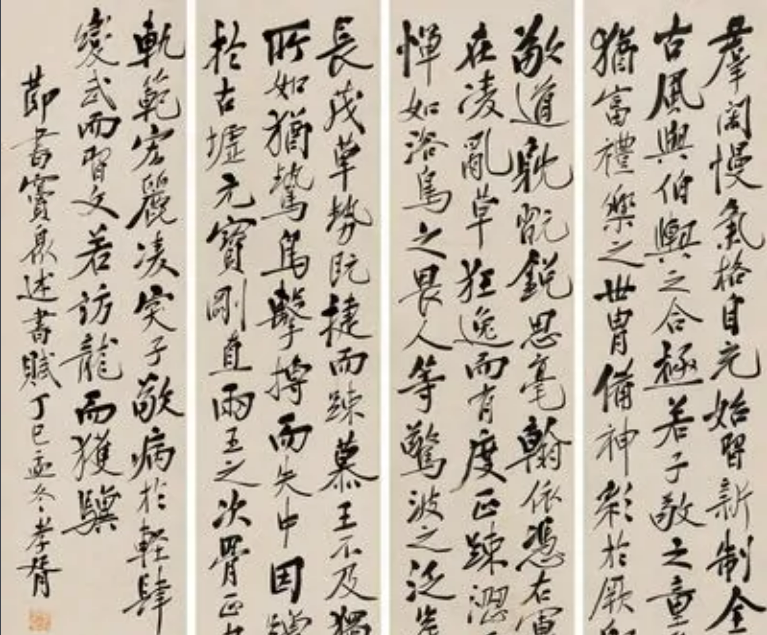 羣闊慢氣格自充始習新制全
古風與伯輿之合極若子敬之童
猶富禮樂之世胄備神彩於厥
敬道耽翫銳思毫翰依憑右軍
在凌亂草狂逸而有度正疎澀
惮如浴鳥之畏人等驚波之泛岸
長茂草勢既捷而疎慕王不及獨
所如猶鷙鳥擊搏而失中因
於古墟元寶剛直兩王之次骨正
軌範宏麗凌突子敬病於輕肆
變武而習文若訪龍而獲驥
節書竇臮述書賦丁巳孟冬孝胥